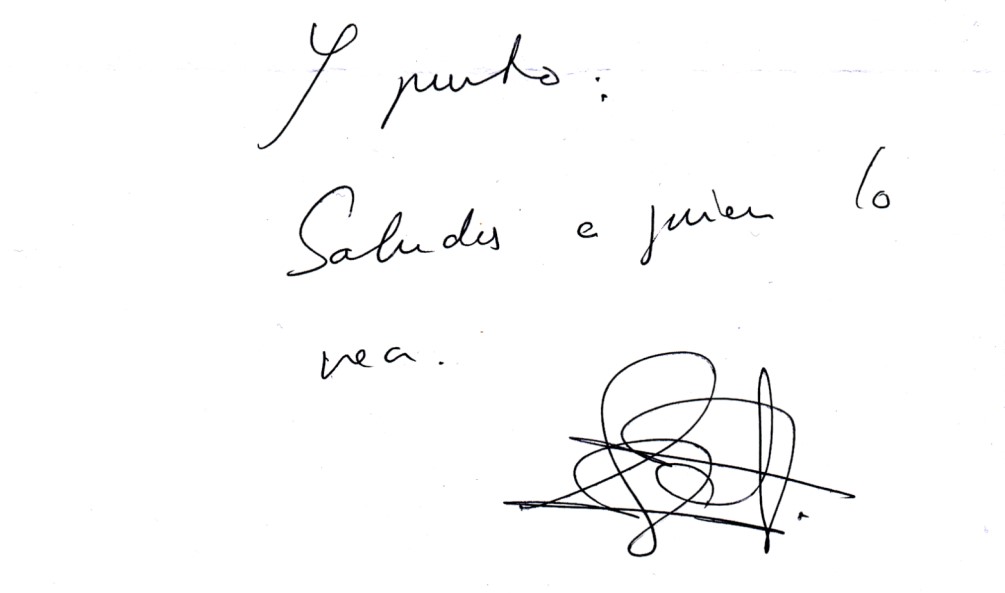 Y punto:
Saludos a quien lo
vea.